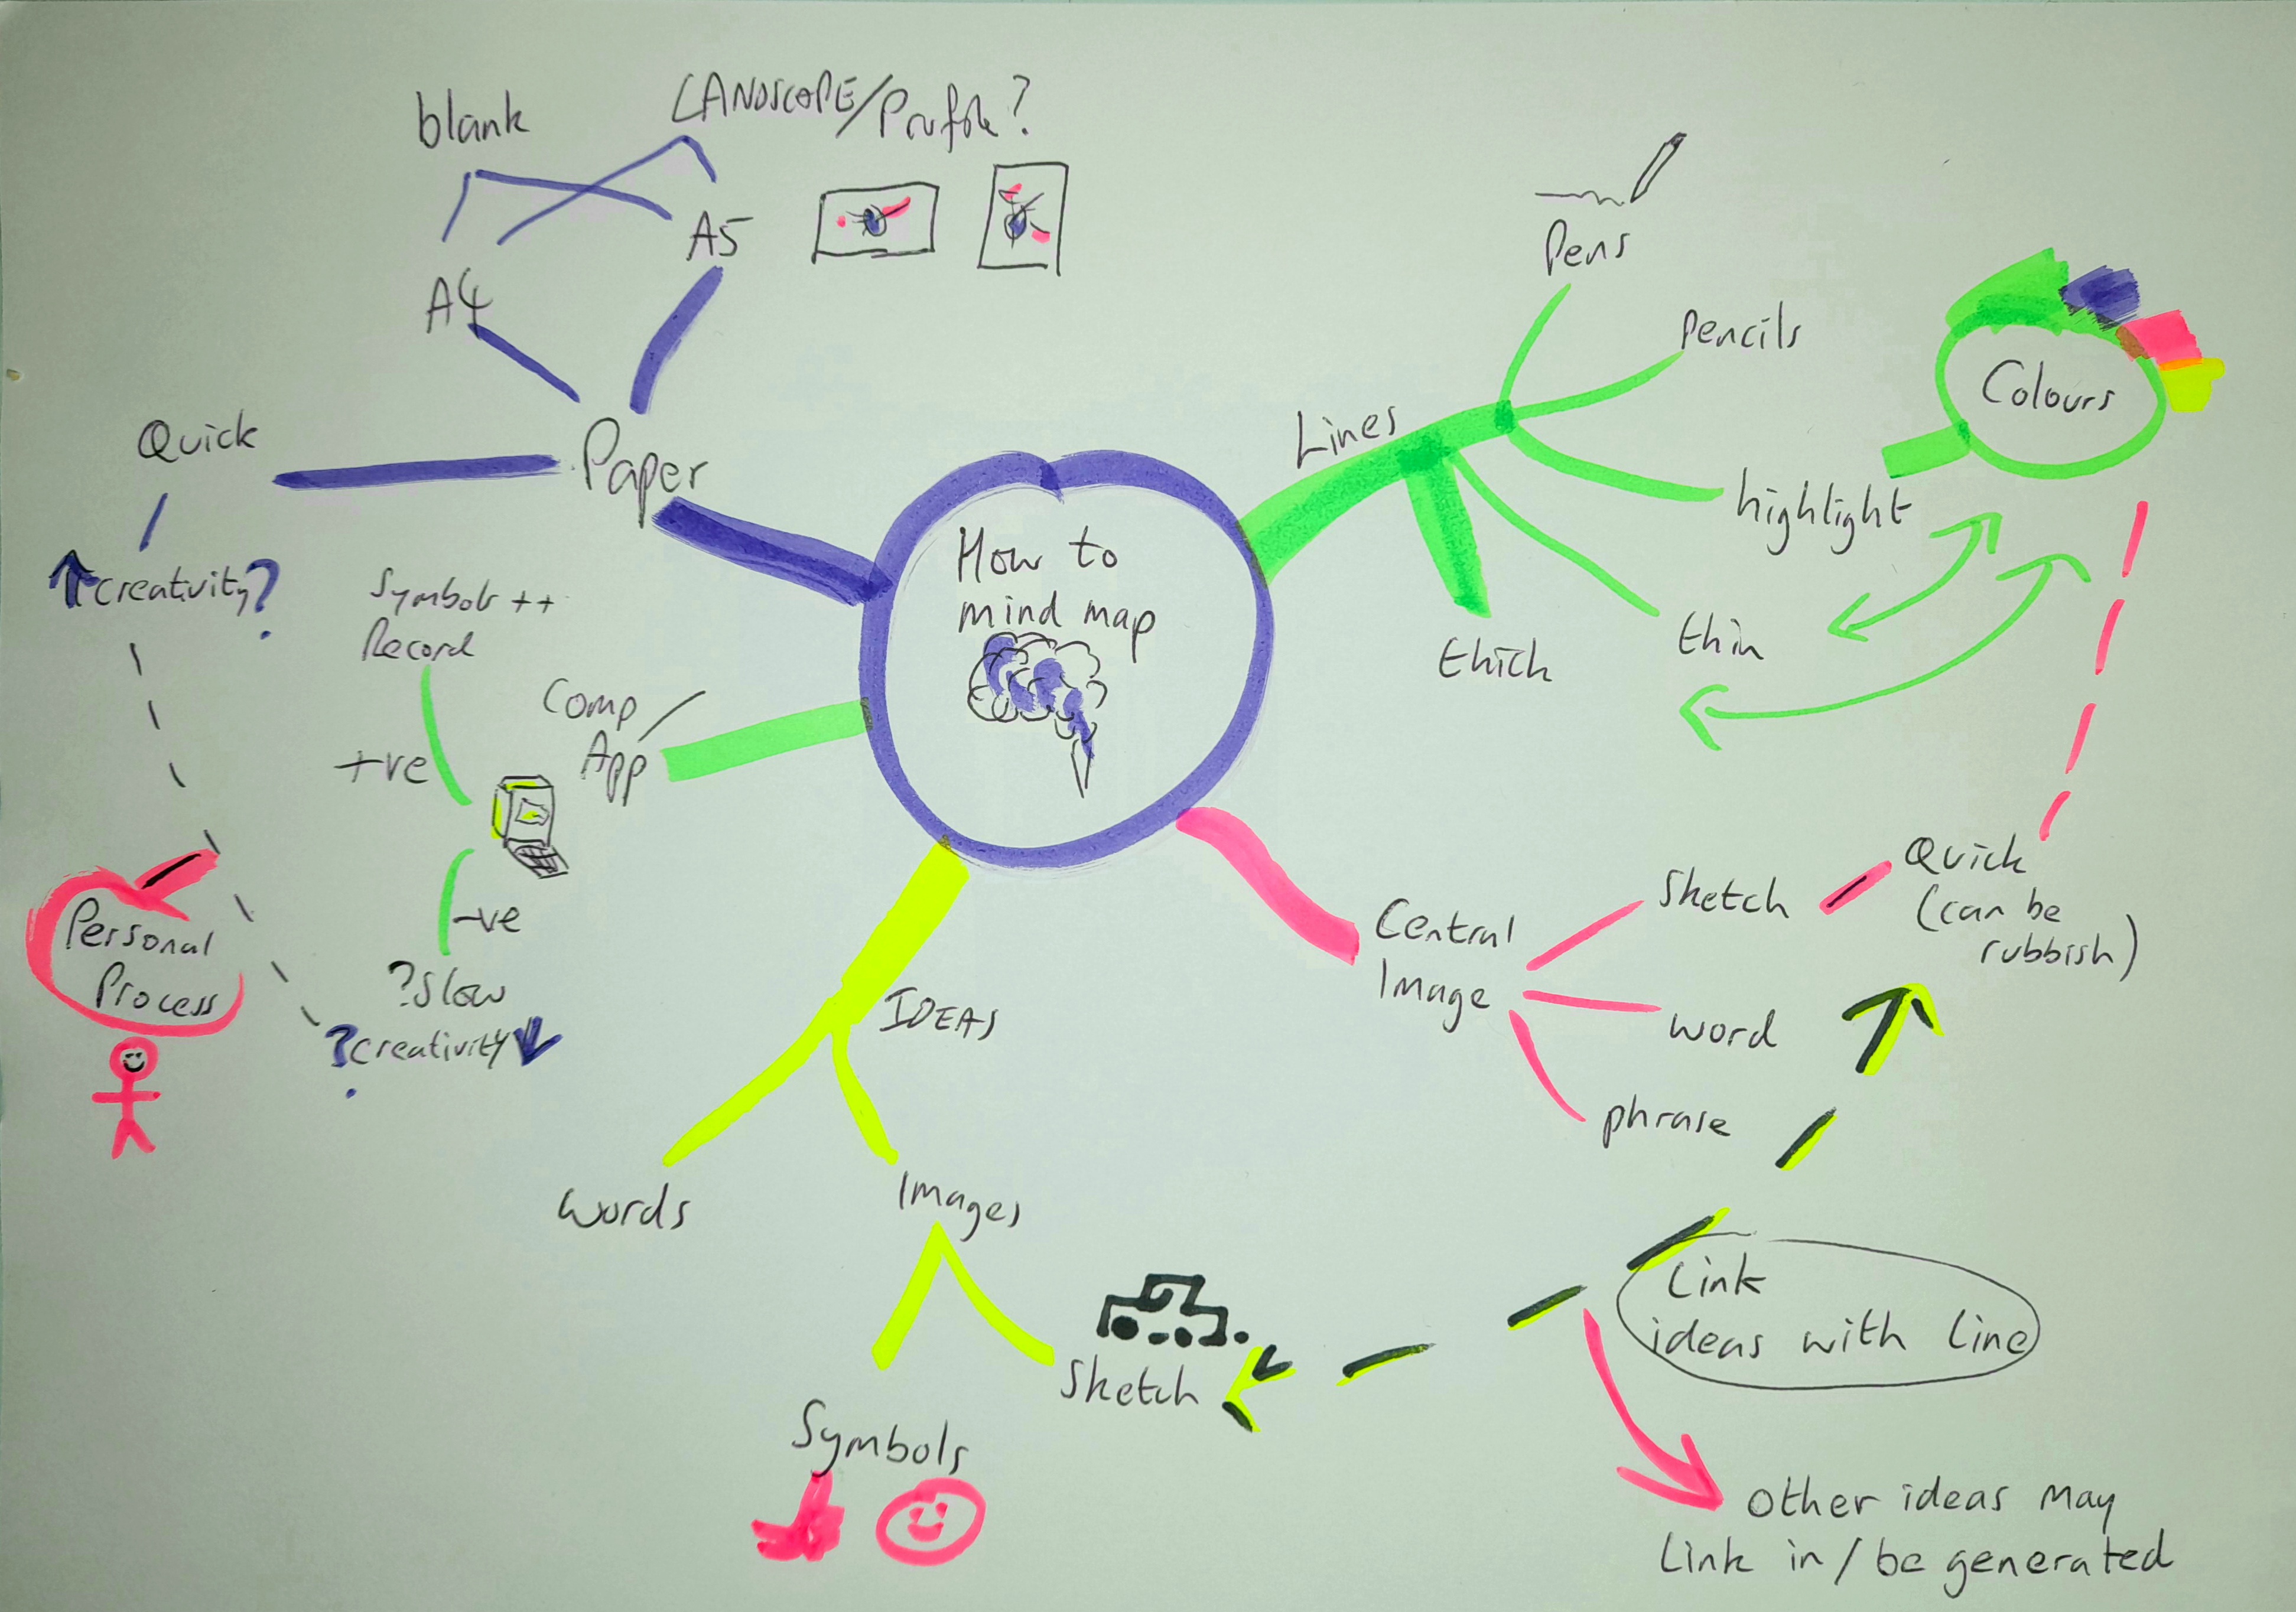 blank
LANDSCOPE/Profile?
A5
A4
Quick
Paper
creativity?
Symbols ++
Record
+ve
Comp
App
-ve
?Slow
?creativity
Personal
Process
How to
mind map
Lines
Pens
Pencils
highlight
Colours
thin
thick
Central
Image
Sketch
Quick
(can be
rubbish)
word
phrase
IDEAS
words
Images
Symbols
Sketch
Link
ideas with line
other ideas may
Link in / be generated